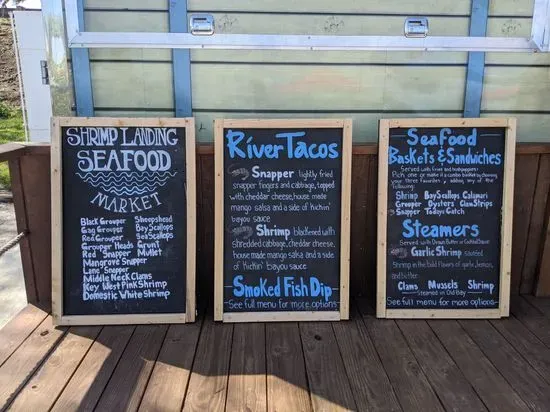 SHRIMP LANDING
SEAFOOD
MARKET
Black Grouper Sheepshead
Gag Grouper Bay Scallops
Red Grouper Sea Scallops
Grouper Heads Grunt
Red Snapper Mullet
Mangrove Snapper
Lane Snapper
Middle Neck Clams
Key West Pink Shrimp
Domestic White Shrimp
River Tacos
Snapper lightly fried
snapper fingers and cabbage, topped
with cheddar cheese, house made
mango salsa and a side of kickin'
bayou sauce
Shrimp blackened with
shredded cabbage, cheddar cheese,
house made mango salsa and a side
of kickin' bayou sauce
Smoked Fish Dip
See full menu for more options
Seafood
Baskets & Sandwiches
Served with fries and hushpuppies
Pick one or make it a combo basket by choosing
your three favorites, adding any of the
following:
Shrimp Bay Scallops Calamari
Grouper Oysters Clam Strips
Snapper Todays Catch
Steamers
Served with Drawn Butter or Cocktail Sauce
Garlic Shrimp sautéed
shrimp in the bold flavors of garlic, lemon,
and butter.
Clams Mussels Shrimp
Steamed in Old Bay
See full menu for more options